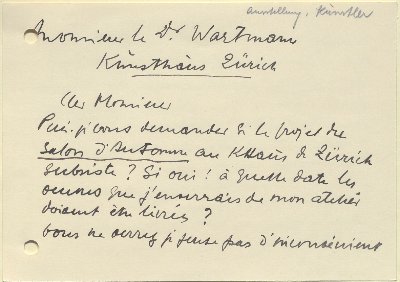 Ausstellung, Künstler
Monsieur le Dr Wartmann
Kunsthaus Zürich
Cher Monsieur
Puis-je vous demander si le projet du
Salon d'Automne au KHaus de Zürich
subsiste ? Si oui ! à quelle date les
œuvres que j'enverrais de mon atelier
doivent être livrées ?
Vous ne verrez je pense pas d'inconvénient